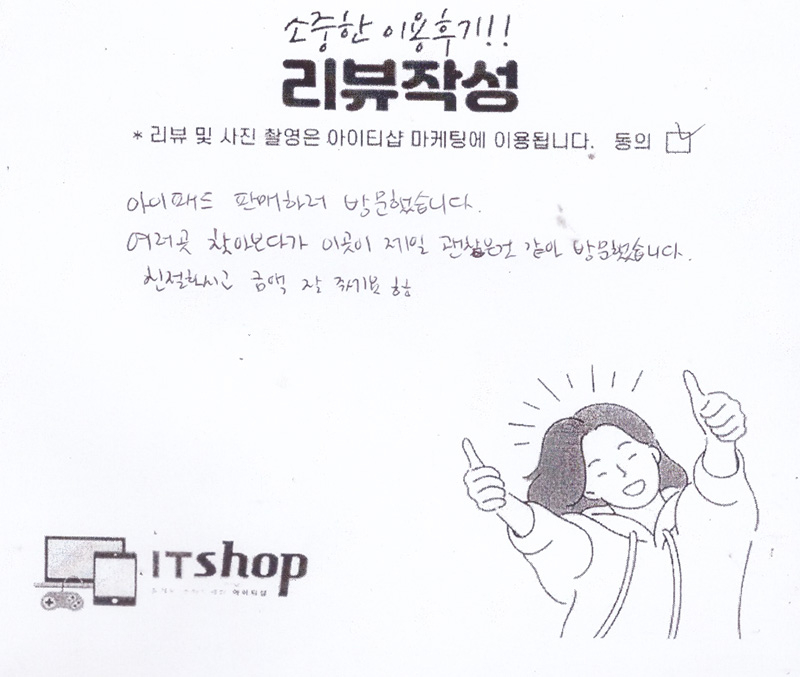 소중한 이용후기!!
리뷰작성
* 리뷰 및 사진 촬영은 아이티샵 마케팅에 이용됩니다. 동의
아이패드 판매하러 방문했습니다.
여러곳 찾아보다가 이곳이 제일 괜찮은것 같아 방문했습니다.
친절하시고 금액 잘 줘기요 핳
ITshop
아이티샵